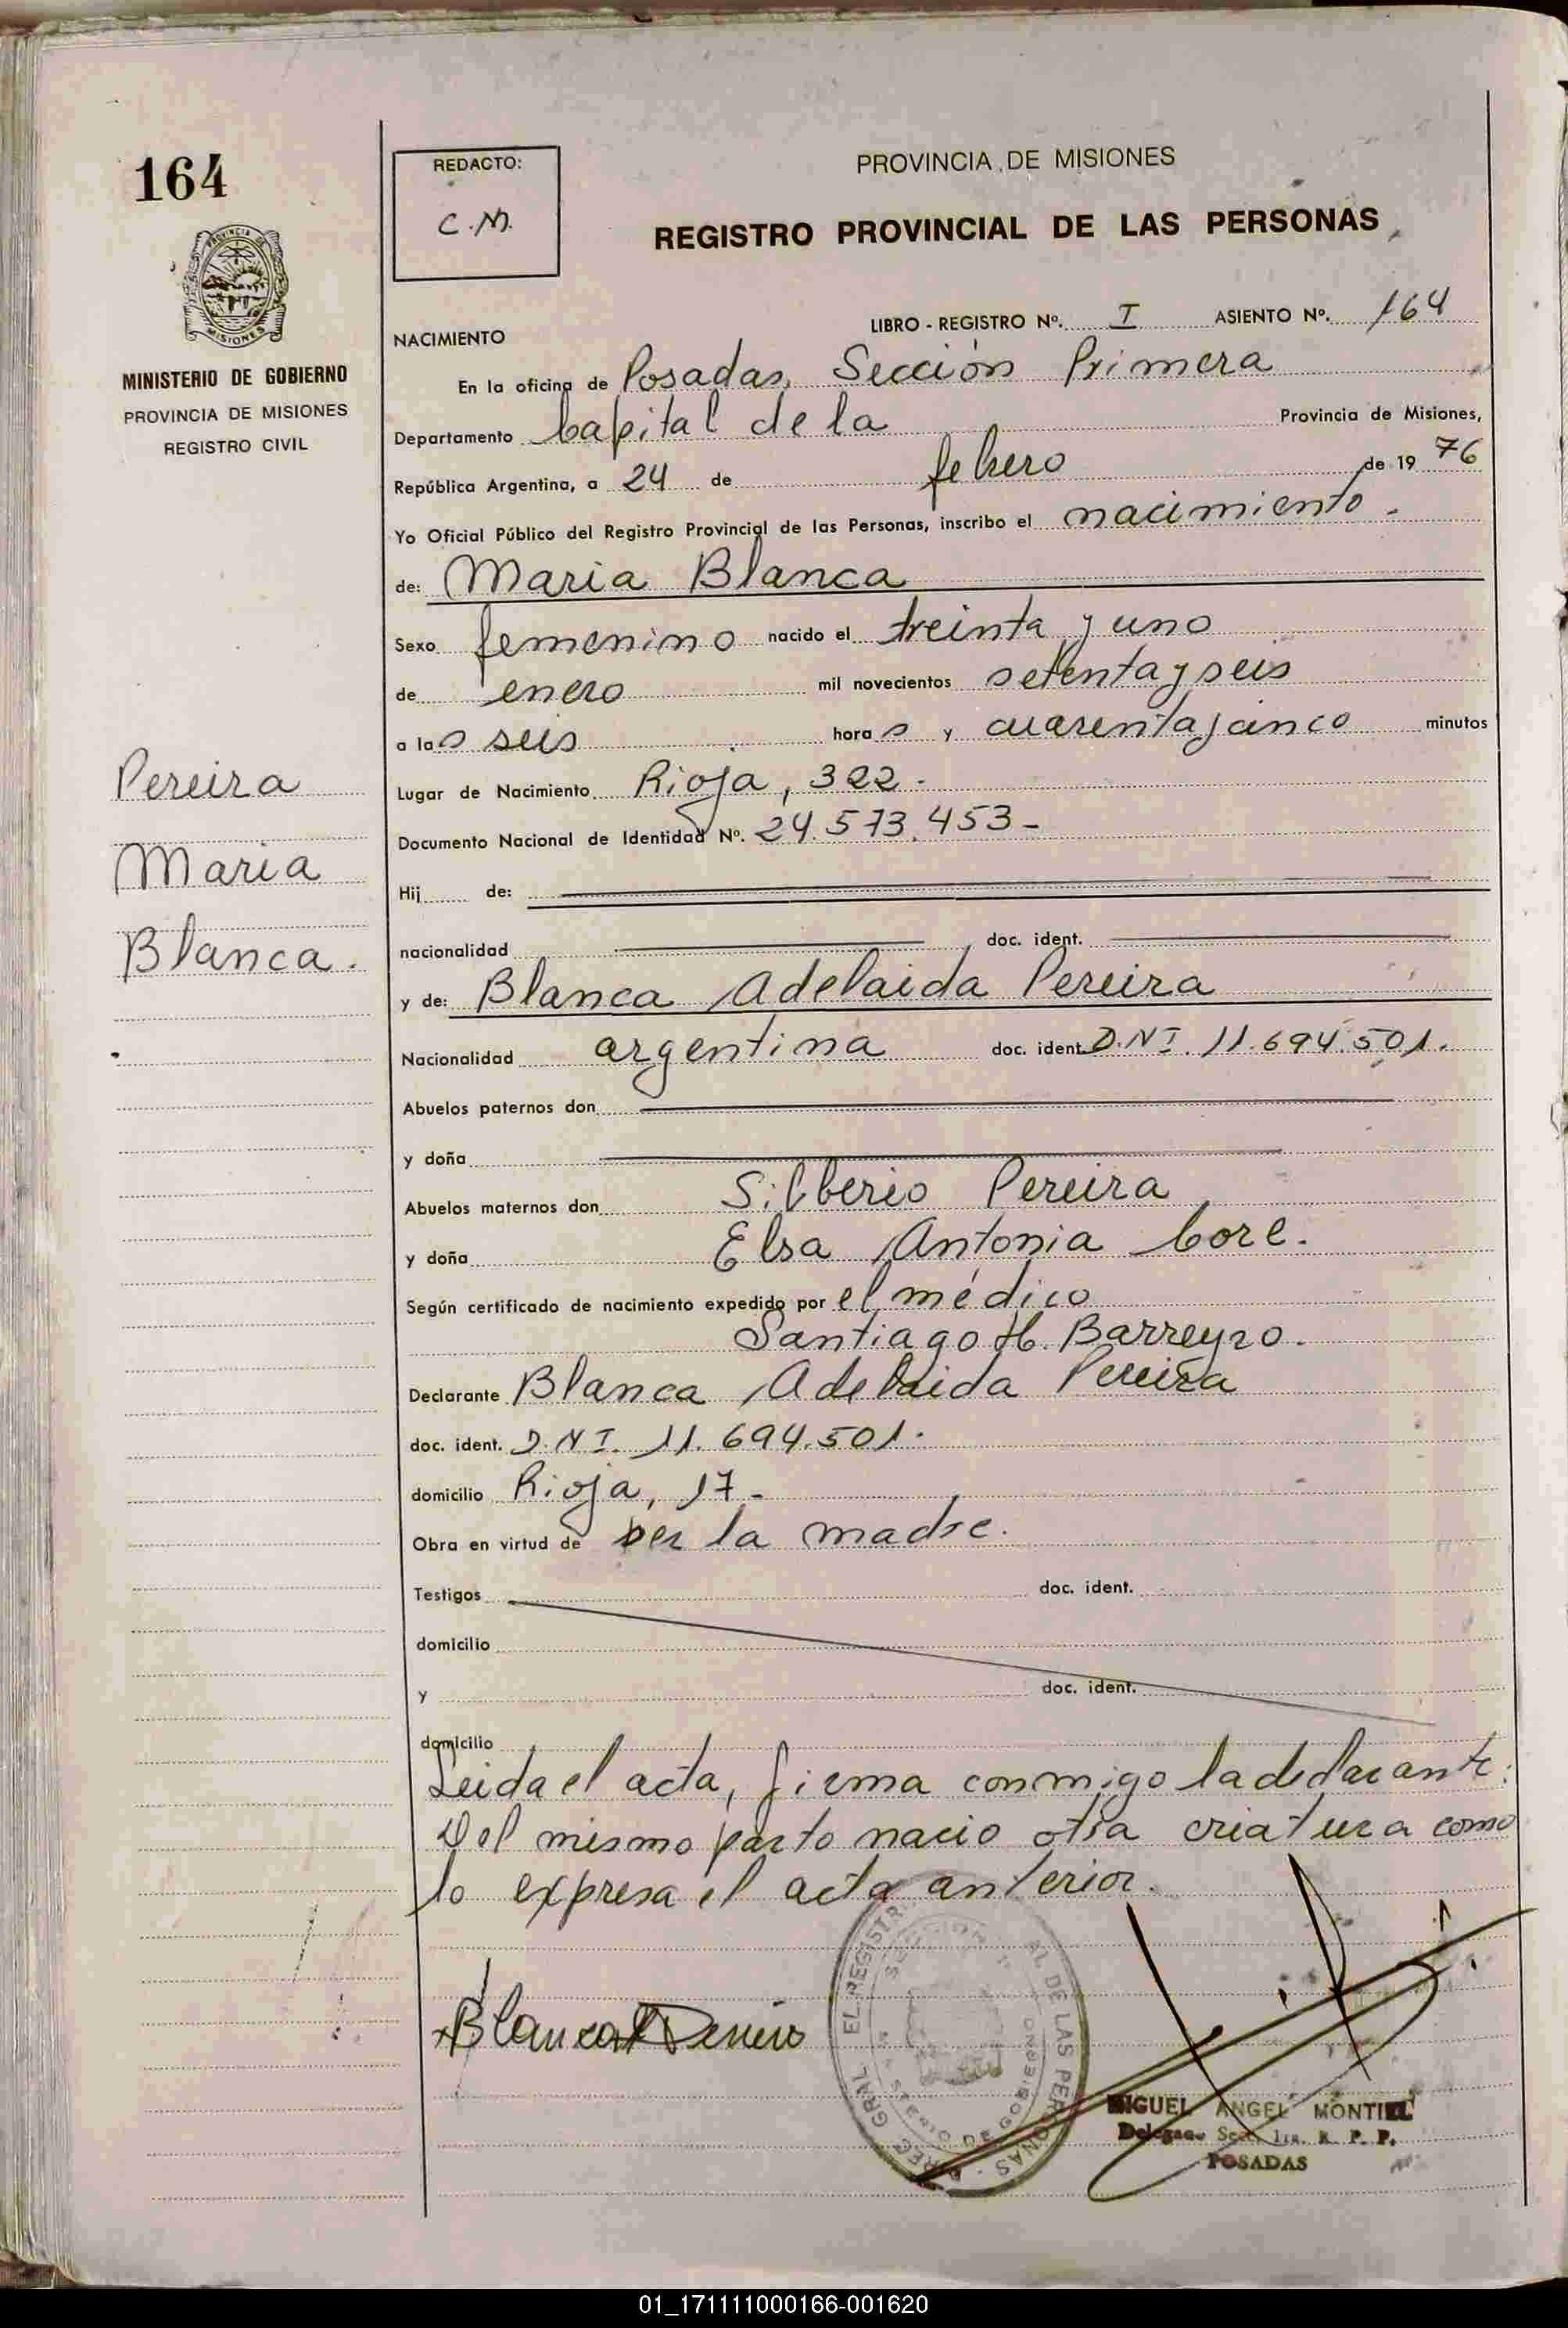 164
REDACTO:
C.M.
PROVINCIA DE MISIONES
REGISTRO PROVINCIAL DE LAS PERSONAS
MINISTERIO DE GOBIERNO
PROVINCIA DE MISIONES
REGISTRO CIVIL
NACIMIENTO
LIBRO - REGISTRO Nº. I ASIENTO Nº. 164
En la oficina de Posadas, Sección Primera
Departamento Capital de la Provincia de Misiones,
República Argentina, a 24 de febrero de 19 76
Yo Oficial Público del Registro Provincial de las Personas, inscribo el nacimiento.
de: Maria Blanca
Sexo femenino nacido el treinta y uno
de enero mil novecientos setenta y seis
a las seis horas y cuarenta y cinco minutos
Pereira
Maria
Blanca.
Lugar de Nacimiento Rioja, 322.
Documento Nacional de Identidad Nº. 24.573.453-
Hij de:
nacionalidad doc. ident.
y de: Blanca Adelaida Pereira
Nacionalidad argentina doc. ident. D.N.I. 11.694.501.
Abuelos paternos don
y doña
Abuelos maternos don Silberio Pereira
y doña Elsa Antonia Core.
Según certificado de nacimiento expedido por el médico
Santiago H. Barreyro.
Declarante Blanca Adelaida Pereira
doc. ident. D.N.I. 11.694.501.
domicilio Rioja, 17-
Obra en virtud de ser la madre.
Testigos doc. ident.
domicilio
y doc. ident.
domicilio
Leida el acta, firma conmigo la declarante:
Del mismo parto nacio otra criatura como
lo expresa el acta anterior.
MIGUEL ANGEL MONTIEL
POSADAS
01_171111000166-001620